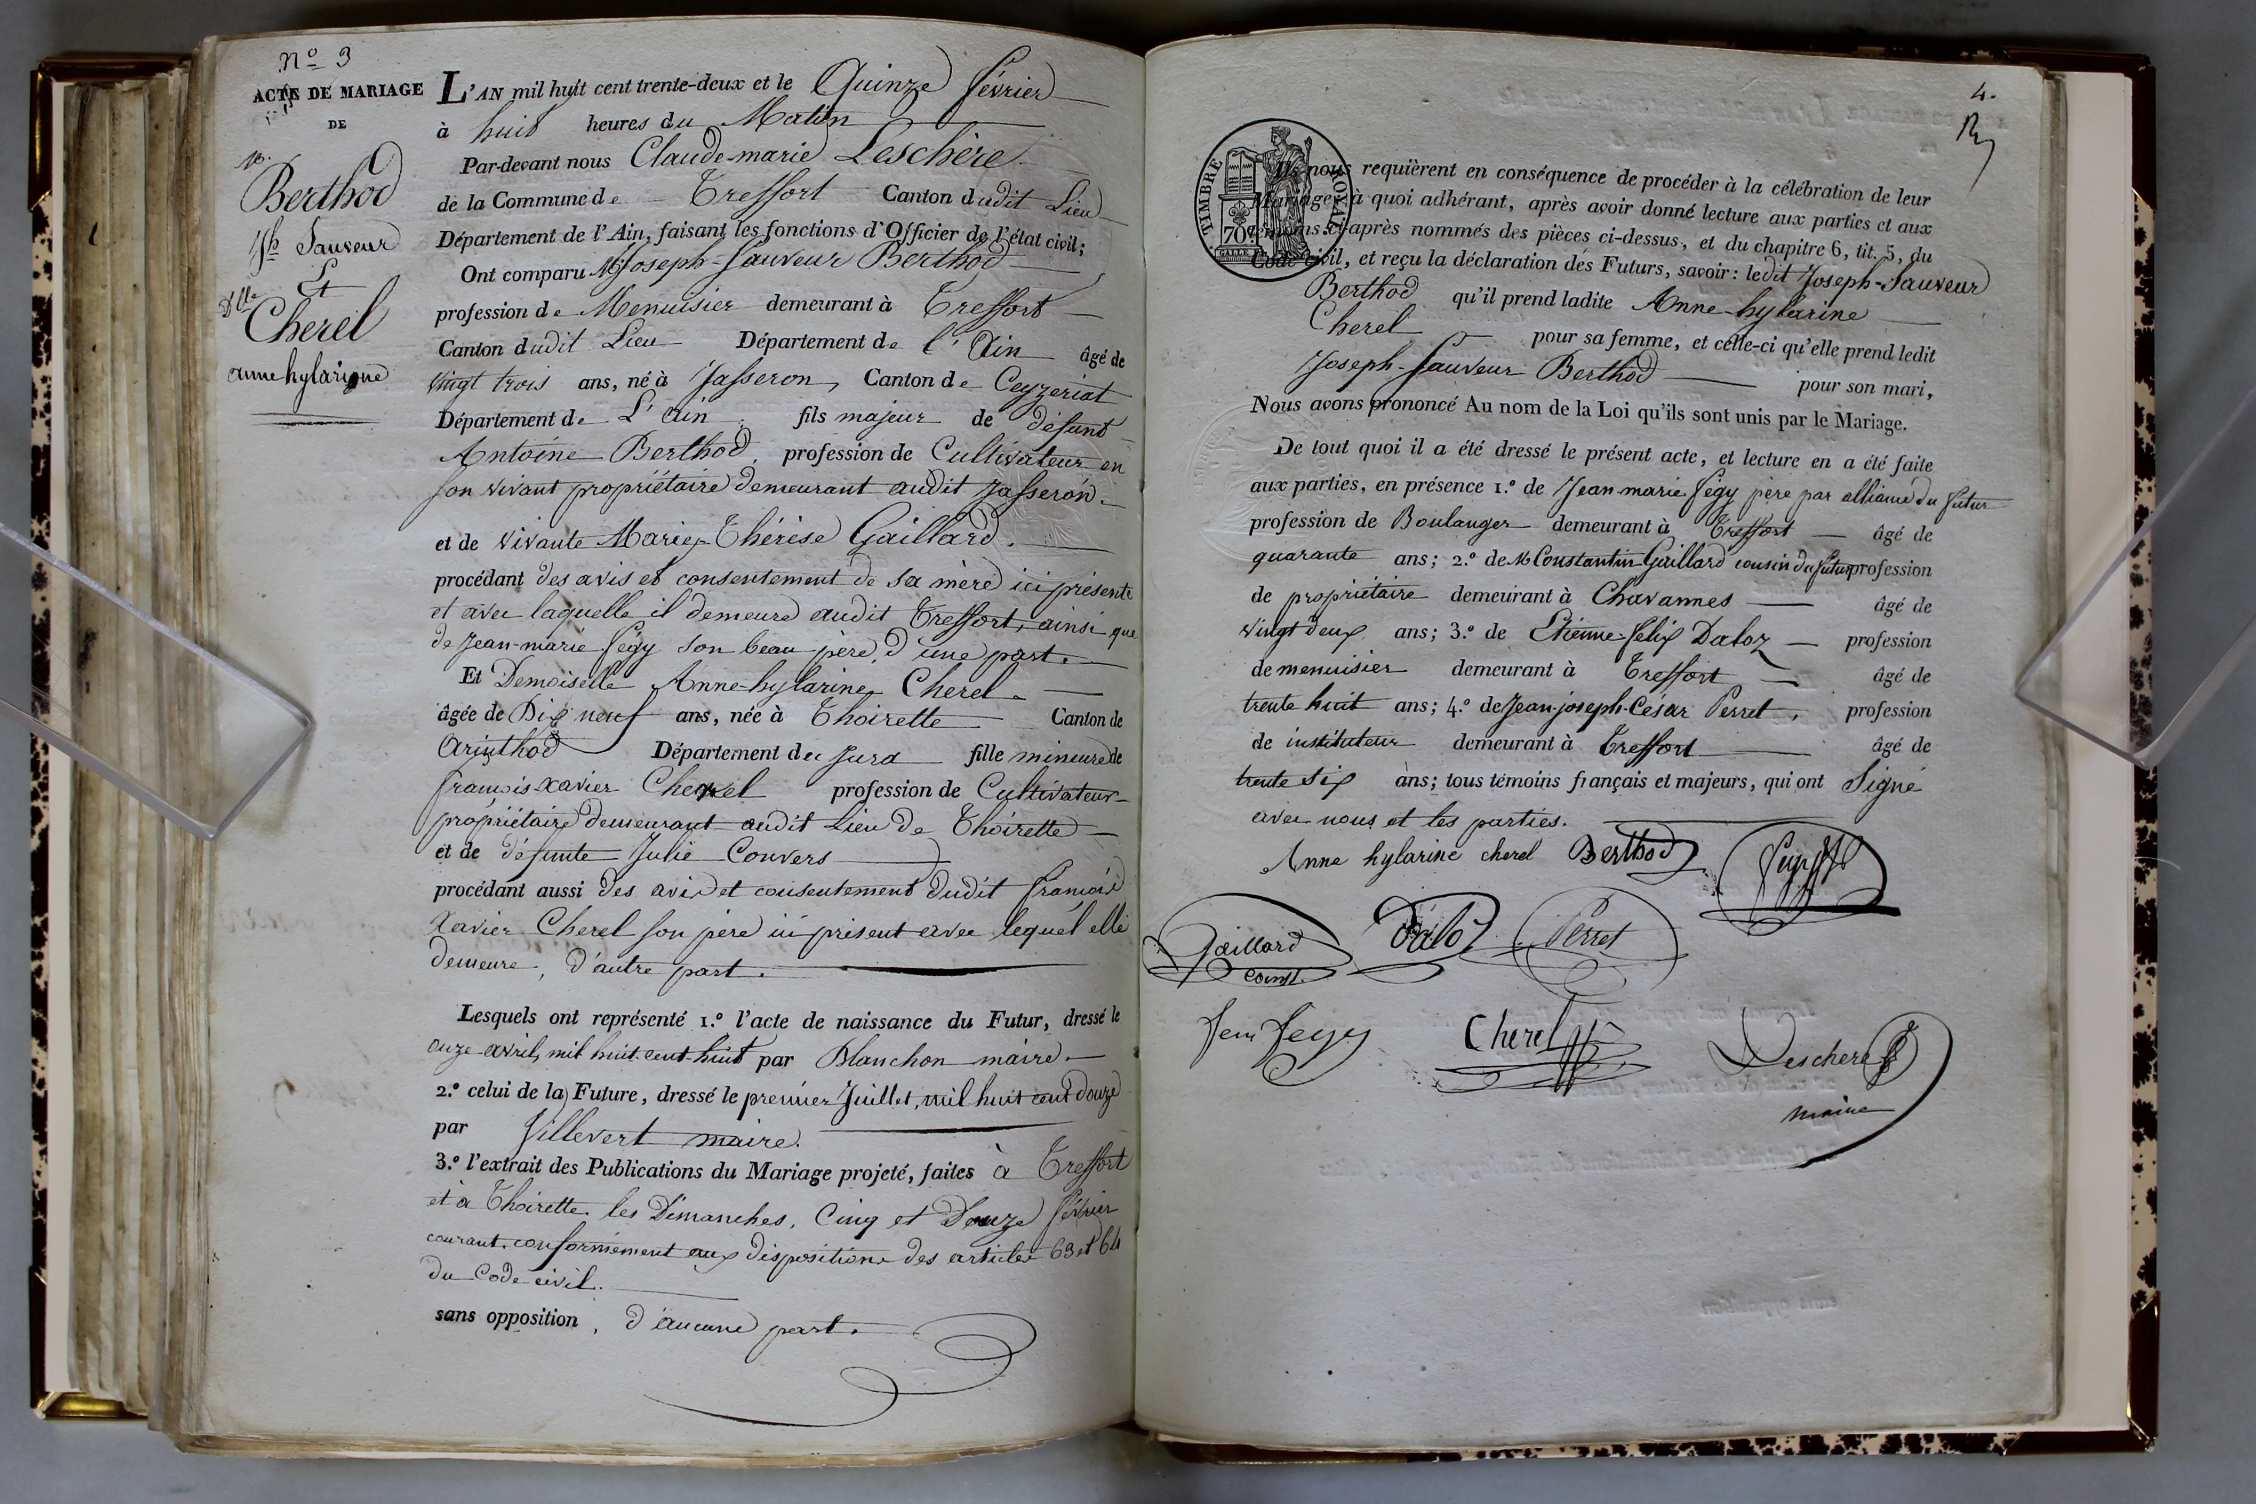 N.o 3
ACTE DE MARIAGE
DE
Mr.
Berthod
Jh Sauveur
Et
Dlle
Cherel
anne hylarine
L'AN mil huit cent trente-deux et le Quinze février
à huit heures du Matin
Par-devant nous Claude-marie Leschère
de la Commune de Treffort Canton dudit Lieu
Département de l'Ain, faisant les fonctions d'Officier de l'état civil;
Ont comparu Mr Joseph-Sauveur Berthod
profession de Menuisier demeurant à Treffort
Canton dudit Lieu Département de l'Ain âgé de
vingt trois ans, né à Jasseron, Canton de Ceyzeriat
Département de L'ain fils majeur de défunt
Antoine Berthod, profession de Cultivateur en
son vivant propriétaire demeurant audit Jasseron.
et de vivante Marie-Thérèse Gaillard.
procédant des avis et consentement de sa mère ici présente
et avec laquelle il demeure audit Treffort, ainsi que
de Jean-marie Fégy son beau père, d'une part.
Et Demoiselle Anne-hylarine Cherel.
âgée de Dix neuf ans, née à Thoirette Canton de
Arinthod Département du Jura fille mineure de
françois Xavier Cherel profession de Cultivateur
propriétaire demeurant audit Lieu de Thoirette
et de défunte Julie Convers
procédant aussi des avis et consentement dudit françois
Xavier Cherel son père ici présent avec lequel elle
demeure, d'autre part.
Lesquels ont représenté 1.º l'acte de naissance du Futur, dressé le
onze avril, mil huit cent huit par Blanchon maire.
2.º celui de la Future, dressé le premier Juillet, mil huit cent douze
par Villevert maire.
3.º l'extrait des Publications du Mariage projeté, faites à Treffort
et à Thoirette les Dimanches, Cinq et Douze février
courant, conformément aux dispositions des articles 63 et 64
du Code civil.
sans opposition, d'aucune part.
4.
TIMBRE ROYAL
70
Ils nous requièrent en conséquence de procéder à la célébration de leur
Mariage, à quoi adhérant, après avoir donné lecture aux parties et aux
témoins ci-après nommés des pièces ci-dessus, et du chapitre 6, tit. 5, du
Code civil, et reçu la déclaration des Futurs, savoir: ledit Joseph-Sauveur
Berthod qu'il prend ladite Anne-hylarine
Cherel pour sa femme, et celle-ci qu'elle prend ledit
Joseph-Sauveur Berthod pour son mari,
Nous avons prononcé Au nom de la Loi qu'ils sont unis par le Mariage.
De tout quoi il a été dressé le présent acte, et lecture en a été faite
aux parties, en présence 1.º de Jean marie Fégy père par alliance du futur
profession de Boulanger demeurant à Treffort âgé de
quarante ans; 2.º de Mr Constantin Gaillard cousin du futur profession
de propriétaire demeurant à Chavannes âgé de
vingt deux ans; 3.º de Etienne-felix Daloz profession
de menuisier demeurant à Treffort âgé de
trente huit ans; 4.º de Jean-joseph-César Perret, profession
de instituteur demeurant à Treffort âgé de
trente six ans; tous témoins français et majeurs, qui ont Signé
avec nous et les parties.
Anne hylarine cherel Berthod
Gaillard const. Daloz Perret
Cherel Leschere
maire